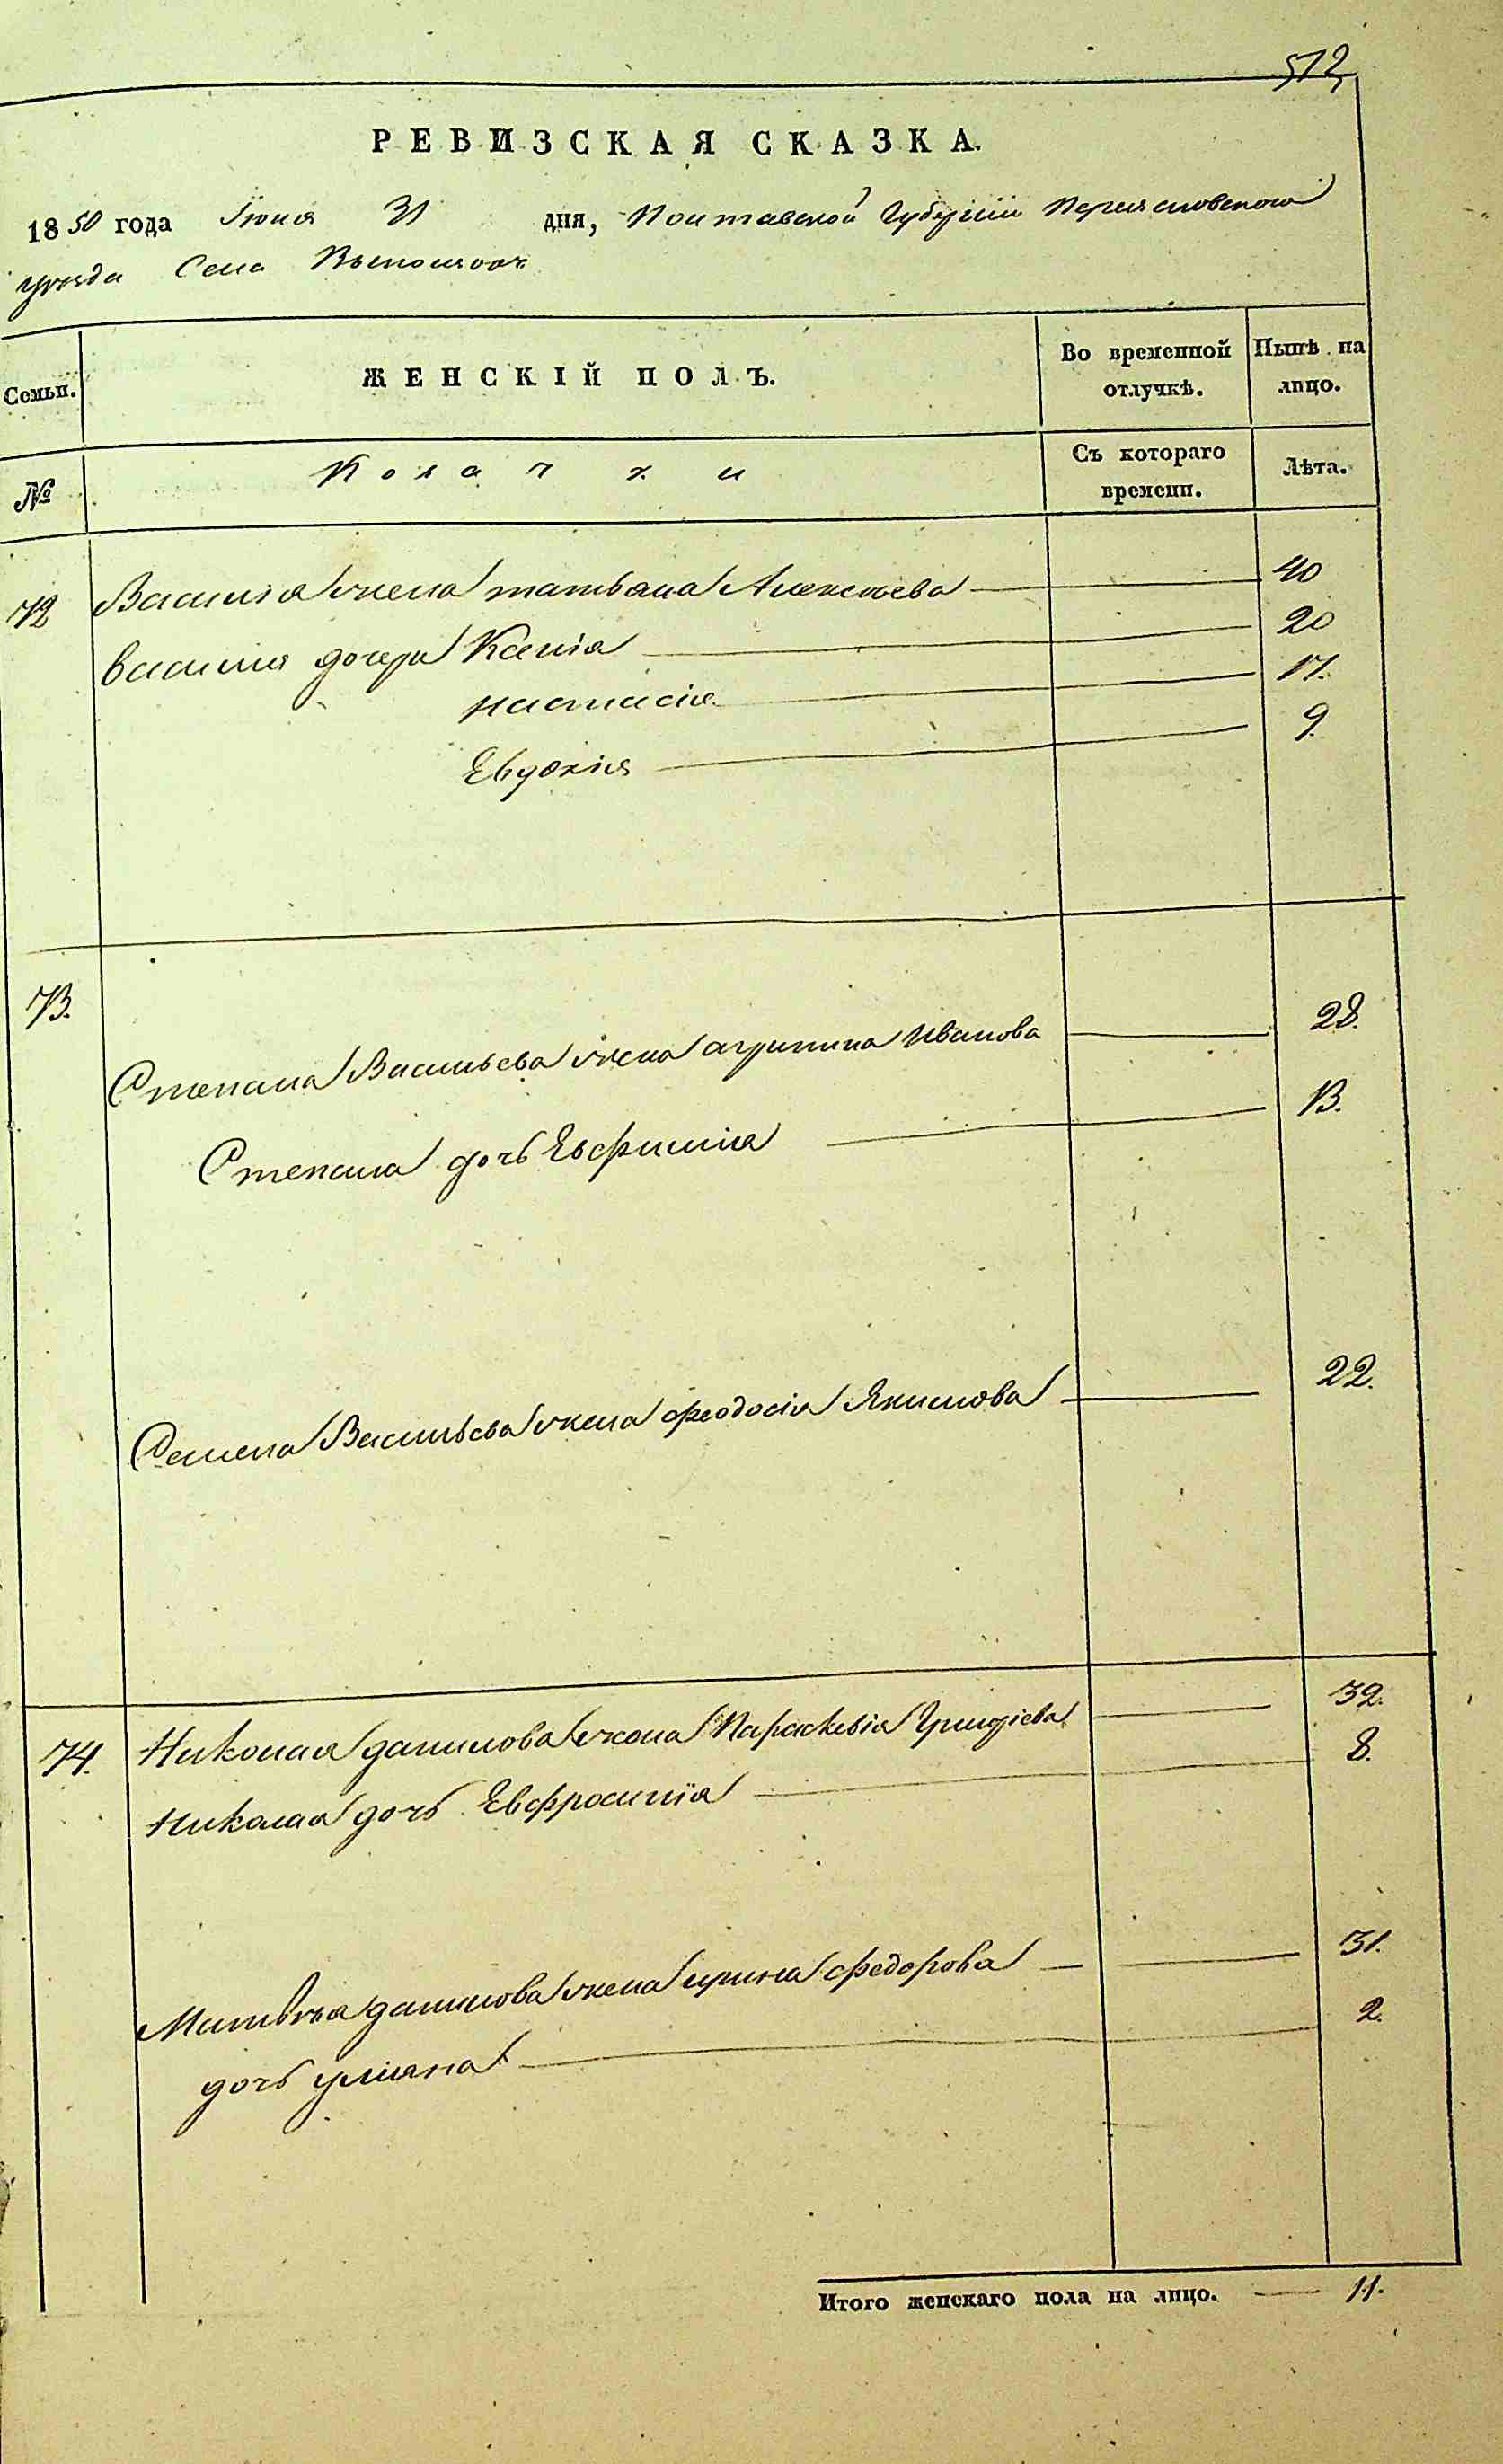 512
РЕВИЗСКАЯ СКАЗКА.
1850 года Іюня 31 дня, Полтавской Губерніи Переясловского
уезда Села
Семьи. ЖЕНСКІЙ ПОЛЪ. Во временной отлучкѣ. Нынѣ на лицо.
№ Козачки Съ котораго времени. Лѣта.
72 Василія жена татьяна Алексеева 40
василия дочери Ксенія 20
настасія 17.
Евдокія 9.
73. Степана Васильева жена агрипина Иванова 28.
Степана дочь Евфимія 13.
Семена Васильева жена феодосія Якимова 22.
74. Николая данилова жена Параскевія 32.
Николая дочь Евфросинія 8.
Матвѣя данилова жена ирина федорова 31.
дочь улияна 2.
Итого женскаго пола на лицо. 11.